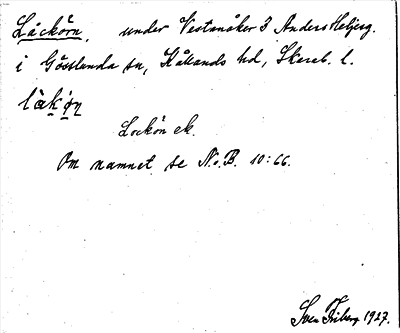 Läckörn, under Vestanåker 3 Anders
i Gösslunda sn, Kållands hd, Skarab. l.
läkøn
Lockön ek.
Om namnet se N.o.B. 10:66.
Sven Friberg 1927.